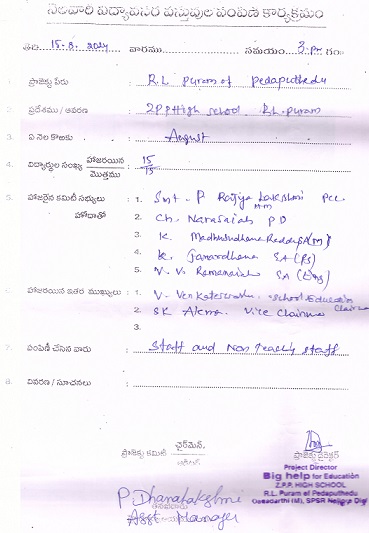 నెలవారీ విద్యావసర వస్తువుల పంపిణీ కార్యక్రమం
తేది 15-8-2024 వారము సమయం 3-PM గం॥
1. ప్రాజెక్టు పేరు : R.L Puram of pedaputhedu
2. ప్రదేశము / ఆవరణ : ZPP High school R.L. puram
3. ఏ నెల కొఱకు : August
4. విద్యార్థుల సంఖ్య హాజరయిన : 15
మొత్తము 15
5. హాజరైన కమిటీ సభ్యులు : 1. Smt. P Rajya Lakshmi
హోదాతో 2. Ch. Narasaiah P D
3. K. Madhusudhana Reddy SA(M)
4. K. Janardhana SA (PS)
5. V. V. Ramanaiah SA (Eng)
6. హాజరయిన ఇతర ముఖ్యులు : 1. V. Venkateswarlu. school Education Chairman
2. SK Vice Chairman
3.
7. పంపిణీ చేసిన వారు : Staff and Non teaching staff
8. వివరణ / సూచనలు :
ప్రాజెక్టు కమిటీ చైర్‌మెన్. ప్రాజెక్టు డైరెక్టర్
Project Director
Big help for Education
Z.P.P. HIGH SCHOOL
R.L. Puram of Pedaputhedu
(M), SPSR Nellore Dist
P. Dhanalakshmi
Asst Manager